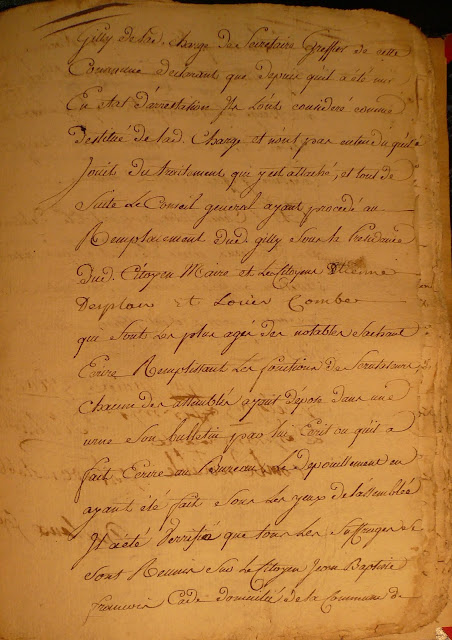 Gilly de lad. charge de Secretaire Greffier de cette
Commune declarant que depuis quil a été mis
En etat d'arrestation Ils l'ont consideré comme
destitué de lad. Charge et n'ont pas entendu quil
Jouit du traitement qui y est attaché, et tout de
Suite Le Conseil general ayant procedé au
Remplacement dud. gilly Sous la Presidence
dud. Citoyen Maire et Les Citoyens Etienne
Desplan et Louis Combe
que sont les plus agés des notables Sachant
Ecrire Remplissant Les fonctions de Scrutateurs
Chacun des assemblés ayant Deposé dans une
urne Son bulletin par lui Ecrit ou quil a
fait Ecrire au Bureau Le Depouillement en
ayant été fait Sous Les yeux de l'assemblée
Il a été Verrifié que tous Les Suffrages Se
Sont Reunis Sur Le Citoyen Jean Baptiste
francois Cade domicilié de la Commune de